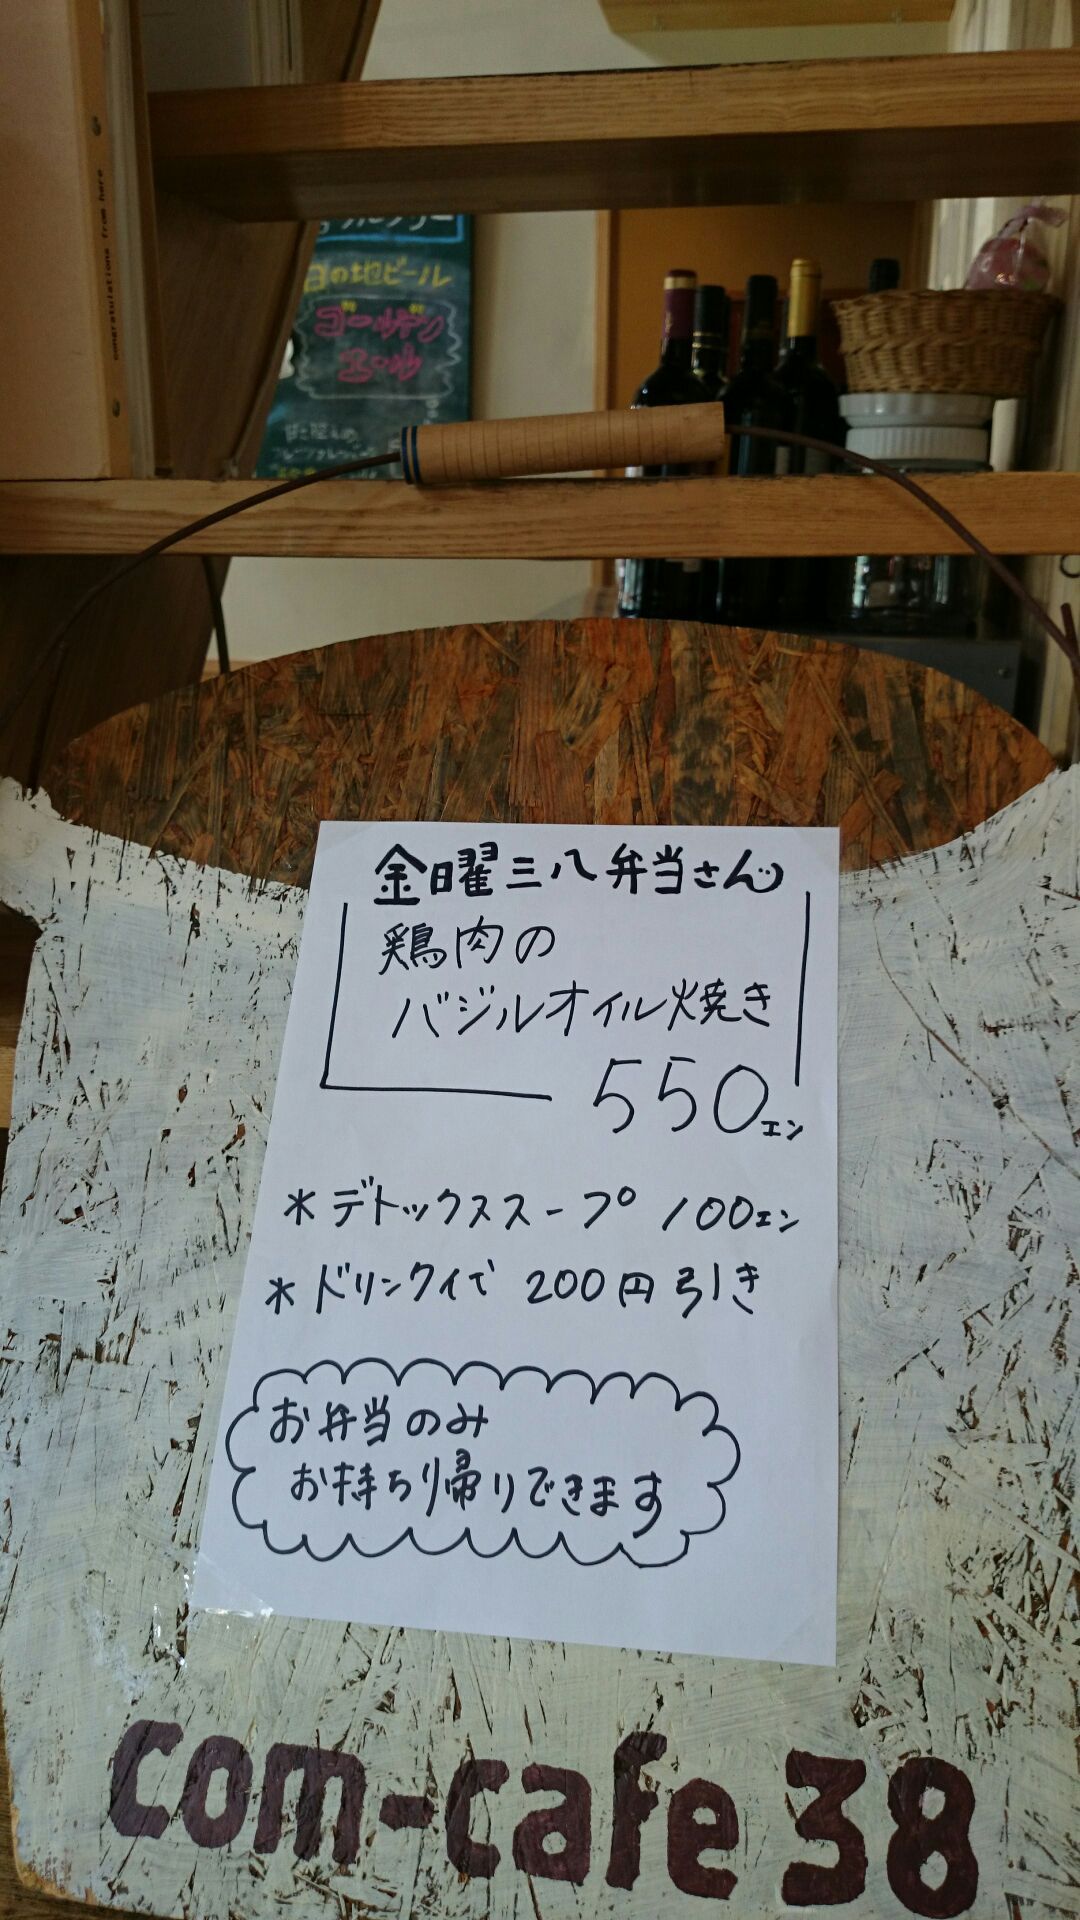 congratulations from here
日の地ビール
ゴールデン
エール
金曜三八弁当さん
鶏肉の
バジルオイル焼き
550エン
＊デトックススープ 100エン
＊ドリンク代で 200円引き
お弁当のみ
お持ち帰りできます
com-cafe 38